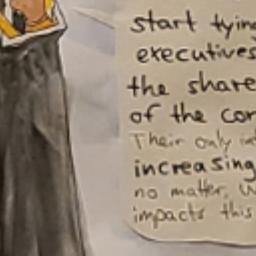 start tying
executives
the share
of the cor
Their only in
increasing
no matter, w
impacts this